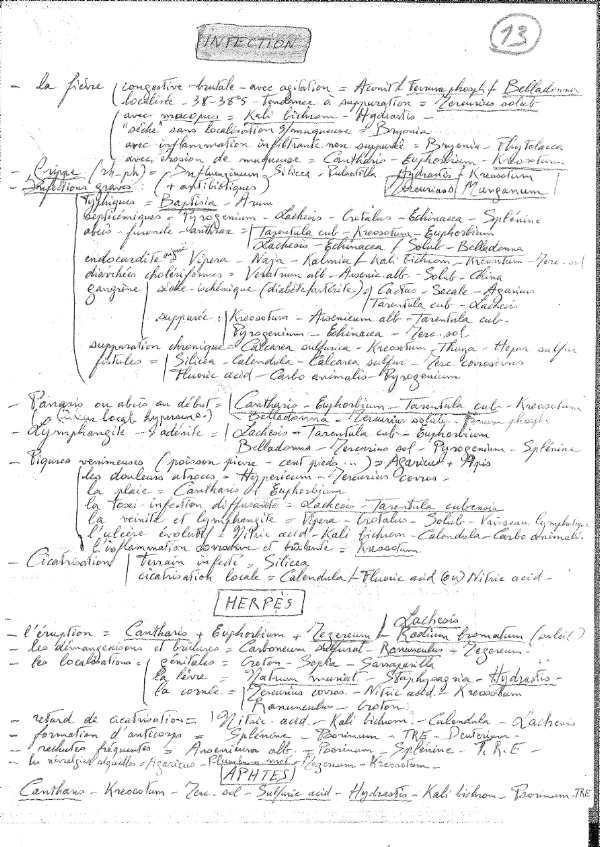 INFECTION
13
- la fièvre congestive - brutale - avec agitation = Aconit f Ferrum phosph f Belladonna
localisée - 38-38°5 - Tendance à suppuration = Mercurius solub
avec mucopus = Kali bichrom - Hydrastis -
"sèche" sans localisation s/muqueuse = Bryonia
avec inflammation infiltrante non suppurée = Bryonia - Phytolacca
avec érosion de muqueuse = Cantharis - Euphorbium - Kreosotum
- Grippe (rh-ph) = Influenzinum - Silicea - Pulsatilla Hydrastis f Kreosotum
- Infections graves : (+ antibiotiques) Manganum
Typhiques = Baptisia - Arum
septicémiques = Pyrogenium - Lachesis - Crotalus - Echinacea - Splénine
abcès - furoncle - anthrax = Tarentula cub - Kreosotum - Euphorbium
Lachesis - Echinacea f Solub - Belladonna
endocardite aiguë = Vipera - Naja - Kalmia f Kali bichrom - Kreosotum - Merc. sol
diarrhées cholériformes = Veratrum alb - Arsenic. alb - Solub - China
gangrène sèche - ischémique (diabète, artérite) Cactus - Secale - Agaricus
Tarentula cub - Lachesis
suppurée : Kreosotum - Arsenicum alb - Tarentula cub -
Pyrogenium - Echinacea - Merc. sol
suppuration chronique = Calcarea sulfurica - Kreosotum - Thuya - Hepar sulfur
fistules = Silicea - Calendula - Calcarea sulfur - Merc corrosivus
Fluoric acid - Carbo animalis - Pyrogenium
- Panaris ou abcès au début = Cantharis - Euphorbium - Tarentula cub - Kreosotum
Belladonna - Mercurius solub - Ferrum phosph.
- Lymphangite - adénite = Lachesis - Tarentula cub - Euphorbium
Belladonna - Mercurius sol - Pyrogenium - Splénine
- Piqures venimeuses (poisson pierre - cent pieds ...) = Agaricus + Apis
les douleurs atroces = Hypericum - Mercurius corros -
la plaie = Cantharis f Euphorbium
la toxi-infection diffusante = Lachesis - Tarentula cubensis
la veinite et lymphangite = Vipera - Crotalus - Solub - Vaisseau lymphatique
l'ulcère évolutif = Nitric acid - Kali bichrom - Calendula - Carbo animalis
l'inflammation corrosive et brûlante = Kreosotum
- Cicatrisation terrain infecté = Silicea
cicatrisation locale = Calendula f Fluoric acid (ou) Nitric acid -
HERPÈS
Lachesis
- l'éruption = Cantharis + Euphorbium + Mezereum f Radium bromatum (soleil)
- les démangeaisons et brûlures = Carboneum sulfurat - Ranunculus - Mezereum -
- les localisations = génitales = Croton - Sepia - Sarsaparilla
la lèvre = Natrum muriat - Staphysagria - Hydrastis -
la cornée = Mercurius corros. - Nitric acid - Kreosotum
Ranunculus - Croton
- retard de cicatrisation = Nitric. acid - Kali bichrom - Calendula - Lachesis
- formation d'anticorps = Splénine - Psorinum - TRE - Deuterium -
- rechutes fréquentes = Arsenicum alb. - Psorinum - Splénine - T.R.E -
- les névralgies aiguës = Agaricus - Plumbum met - Mezereum - Kreosotum -
APHTES
Cantharis - Kreosotum - Merc. sol - Sulfuric acid - Hydrastis - Kali bichrom - Psorinum - TRE